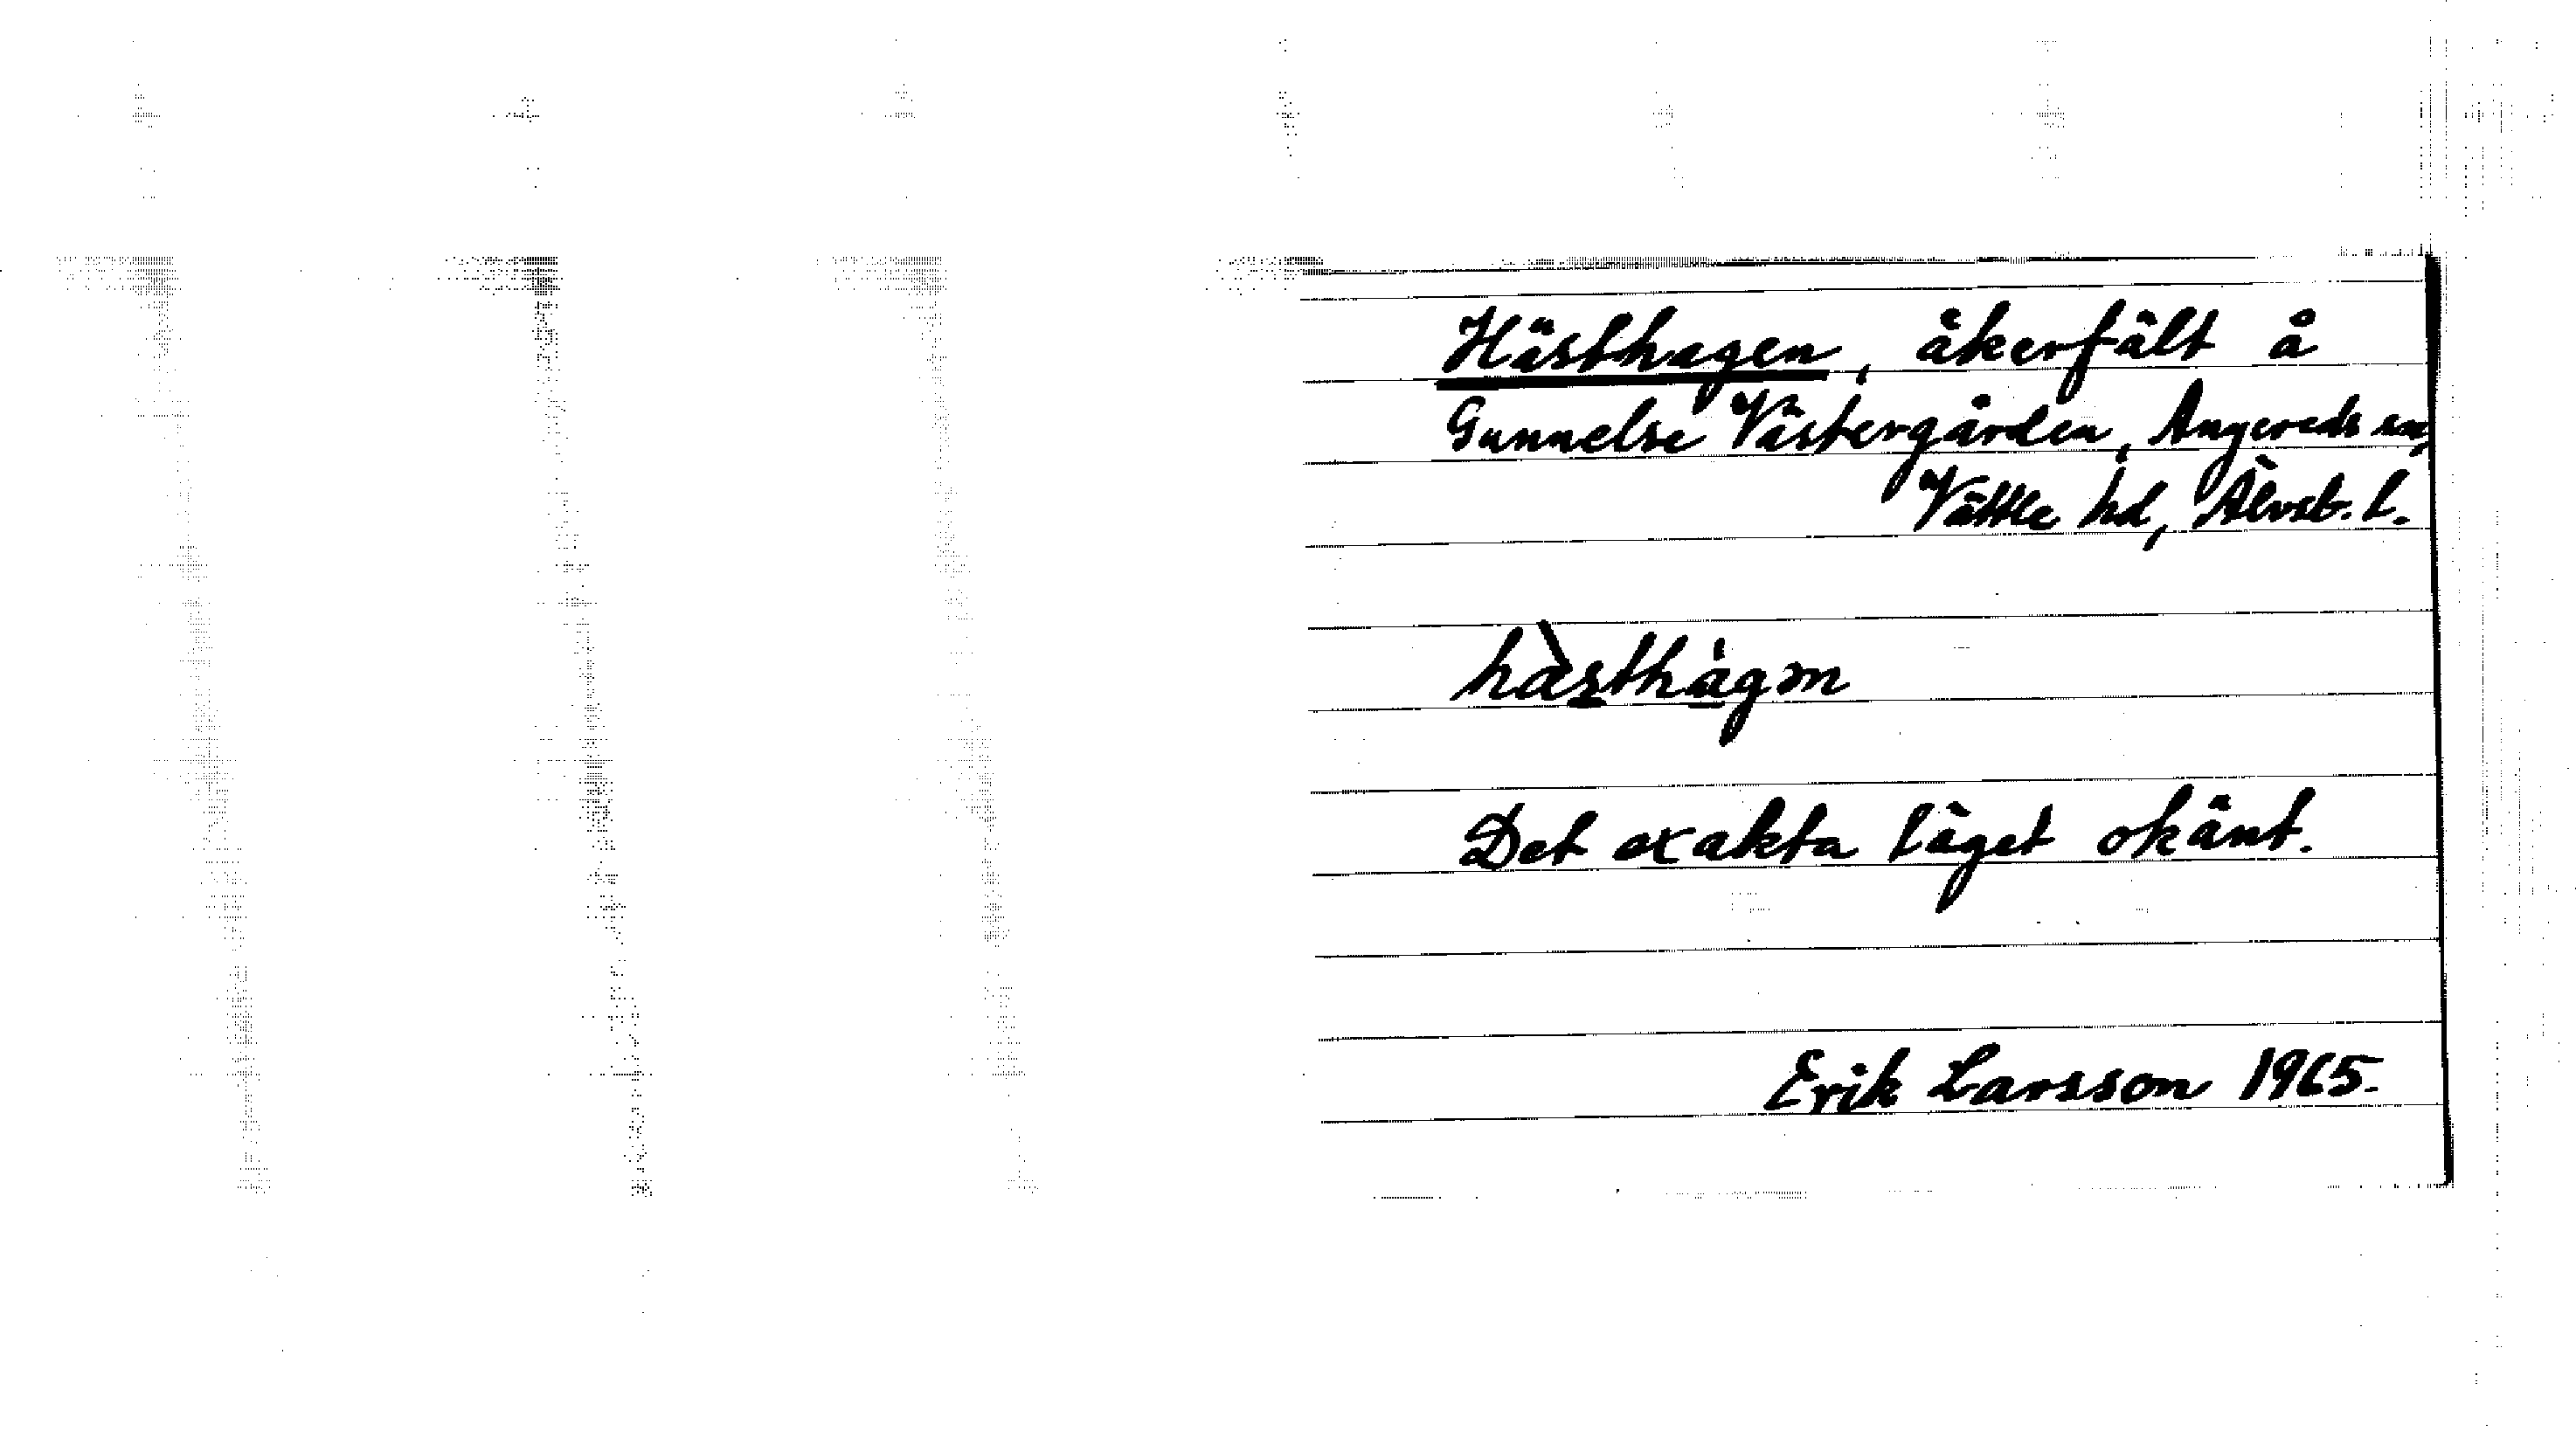 Hästhagen, åkerfält å
Gunnelse Västergården, Angereds sn,
Vättle hd, Älvsb. l.
hàsthàgm
Det exakta läget okänt.
Erik Larsson 1965.